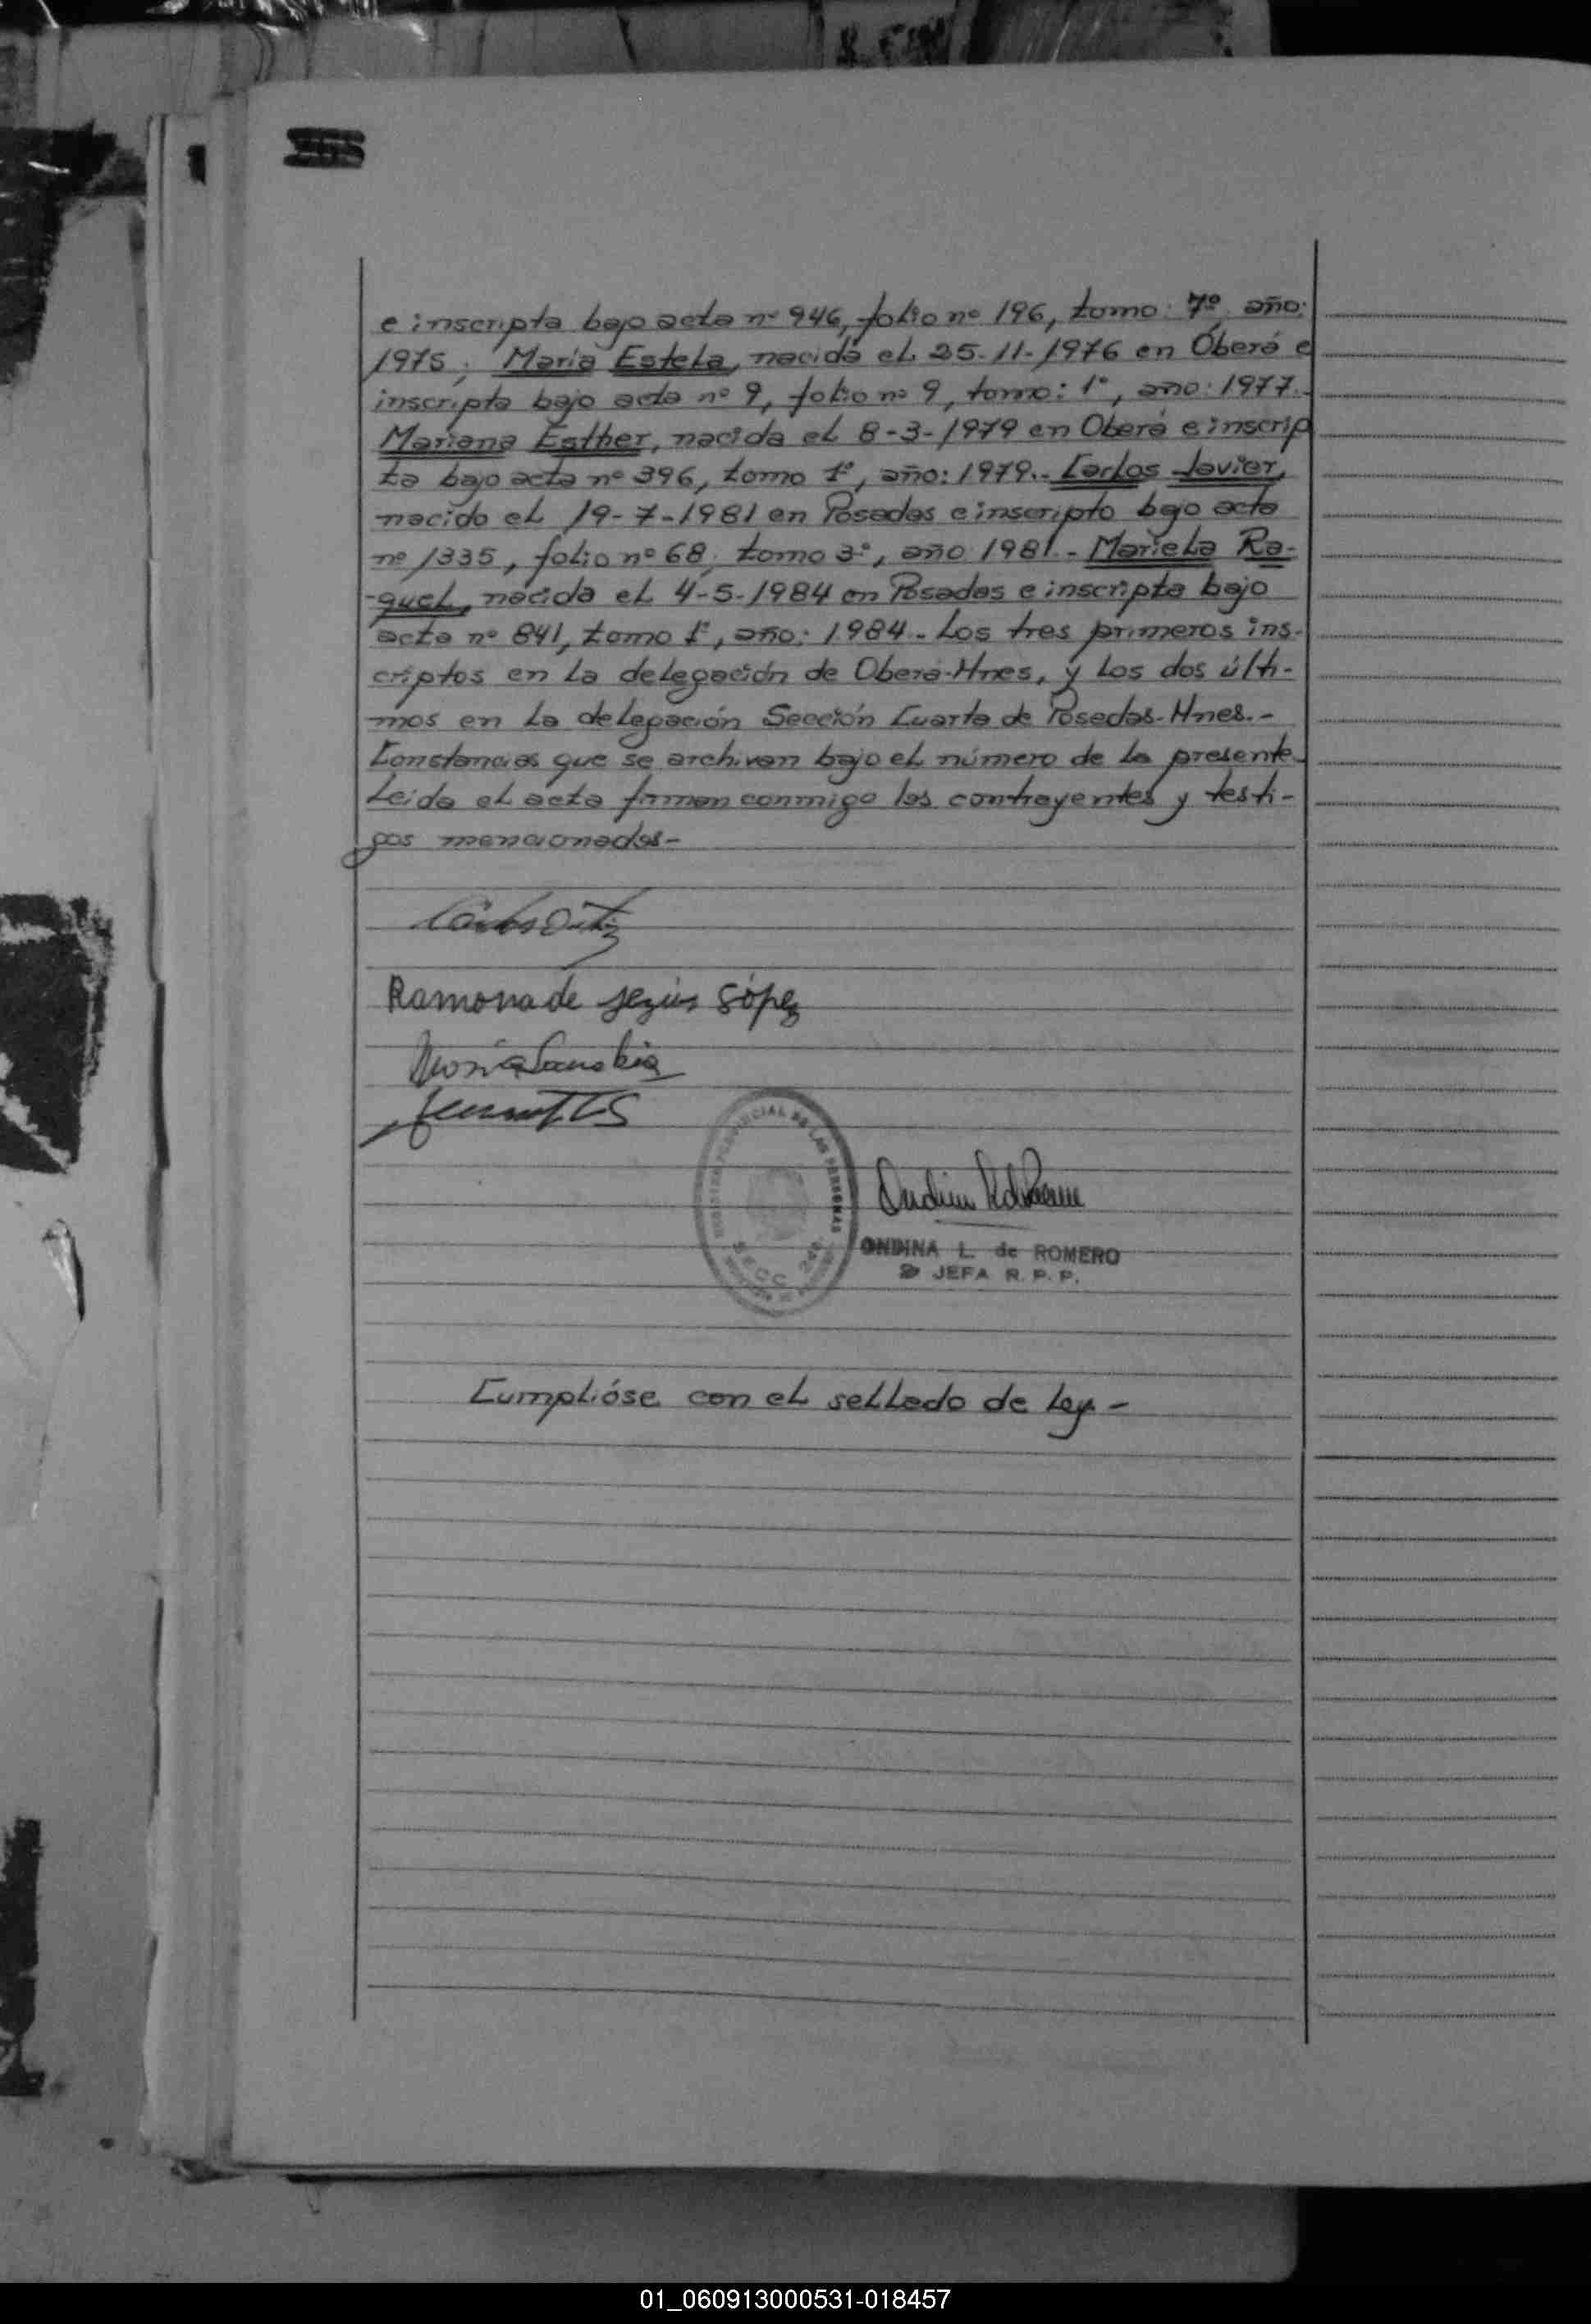 e inscripta bajo acta nº 946, folio nº 196, tomo: 7º año:
1975; María Estela, nacida el 25-11-1976 en Oberá e
inscripta bajo acta nº 9, folio nº 9, tomo: 1º, año: 1977.-
Mariana Esther, nacida el 8-3-1979 en Oberá e inscrip
ta bajo acta nº 396, tomo 1º, año: 1979.- Carlos Javier,
nacido el 19-7-1981 en Posadas e inscripto bajo acta
nº 1335, folio nº 68, tomo 3º, año 1981.- Mariela Ra-
-quel, nacida el 4-5-1984 en Posadas e inscripta bajo
acta nº 841, tomo 1º, año: 1984.- Los tres primeros ins-
criptos en la delegación de Oberá-Mnes, y los dos últi-
mos en la delegación Sección Cuarta de Posadas-Mnes.-
Constancias que se archivan bajo el número de la presente.
Leida el acta firman conmigo los contrayentes y testi-
gos mencionados-
Carlos Ortiz
Ramona de Jezús López
PROVINCIAL DE LAS PERSONAS
SECC 2da
ONDINA L. de ROMERO
JEFA R. P. P.
Cumplióse con el sellado de Ley-
01_060913000531-018457